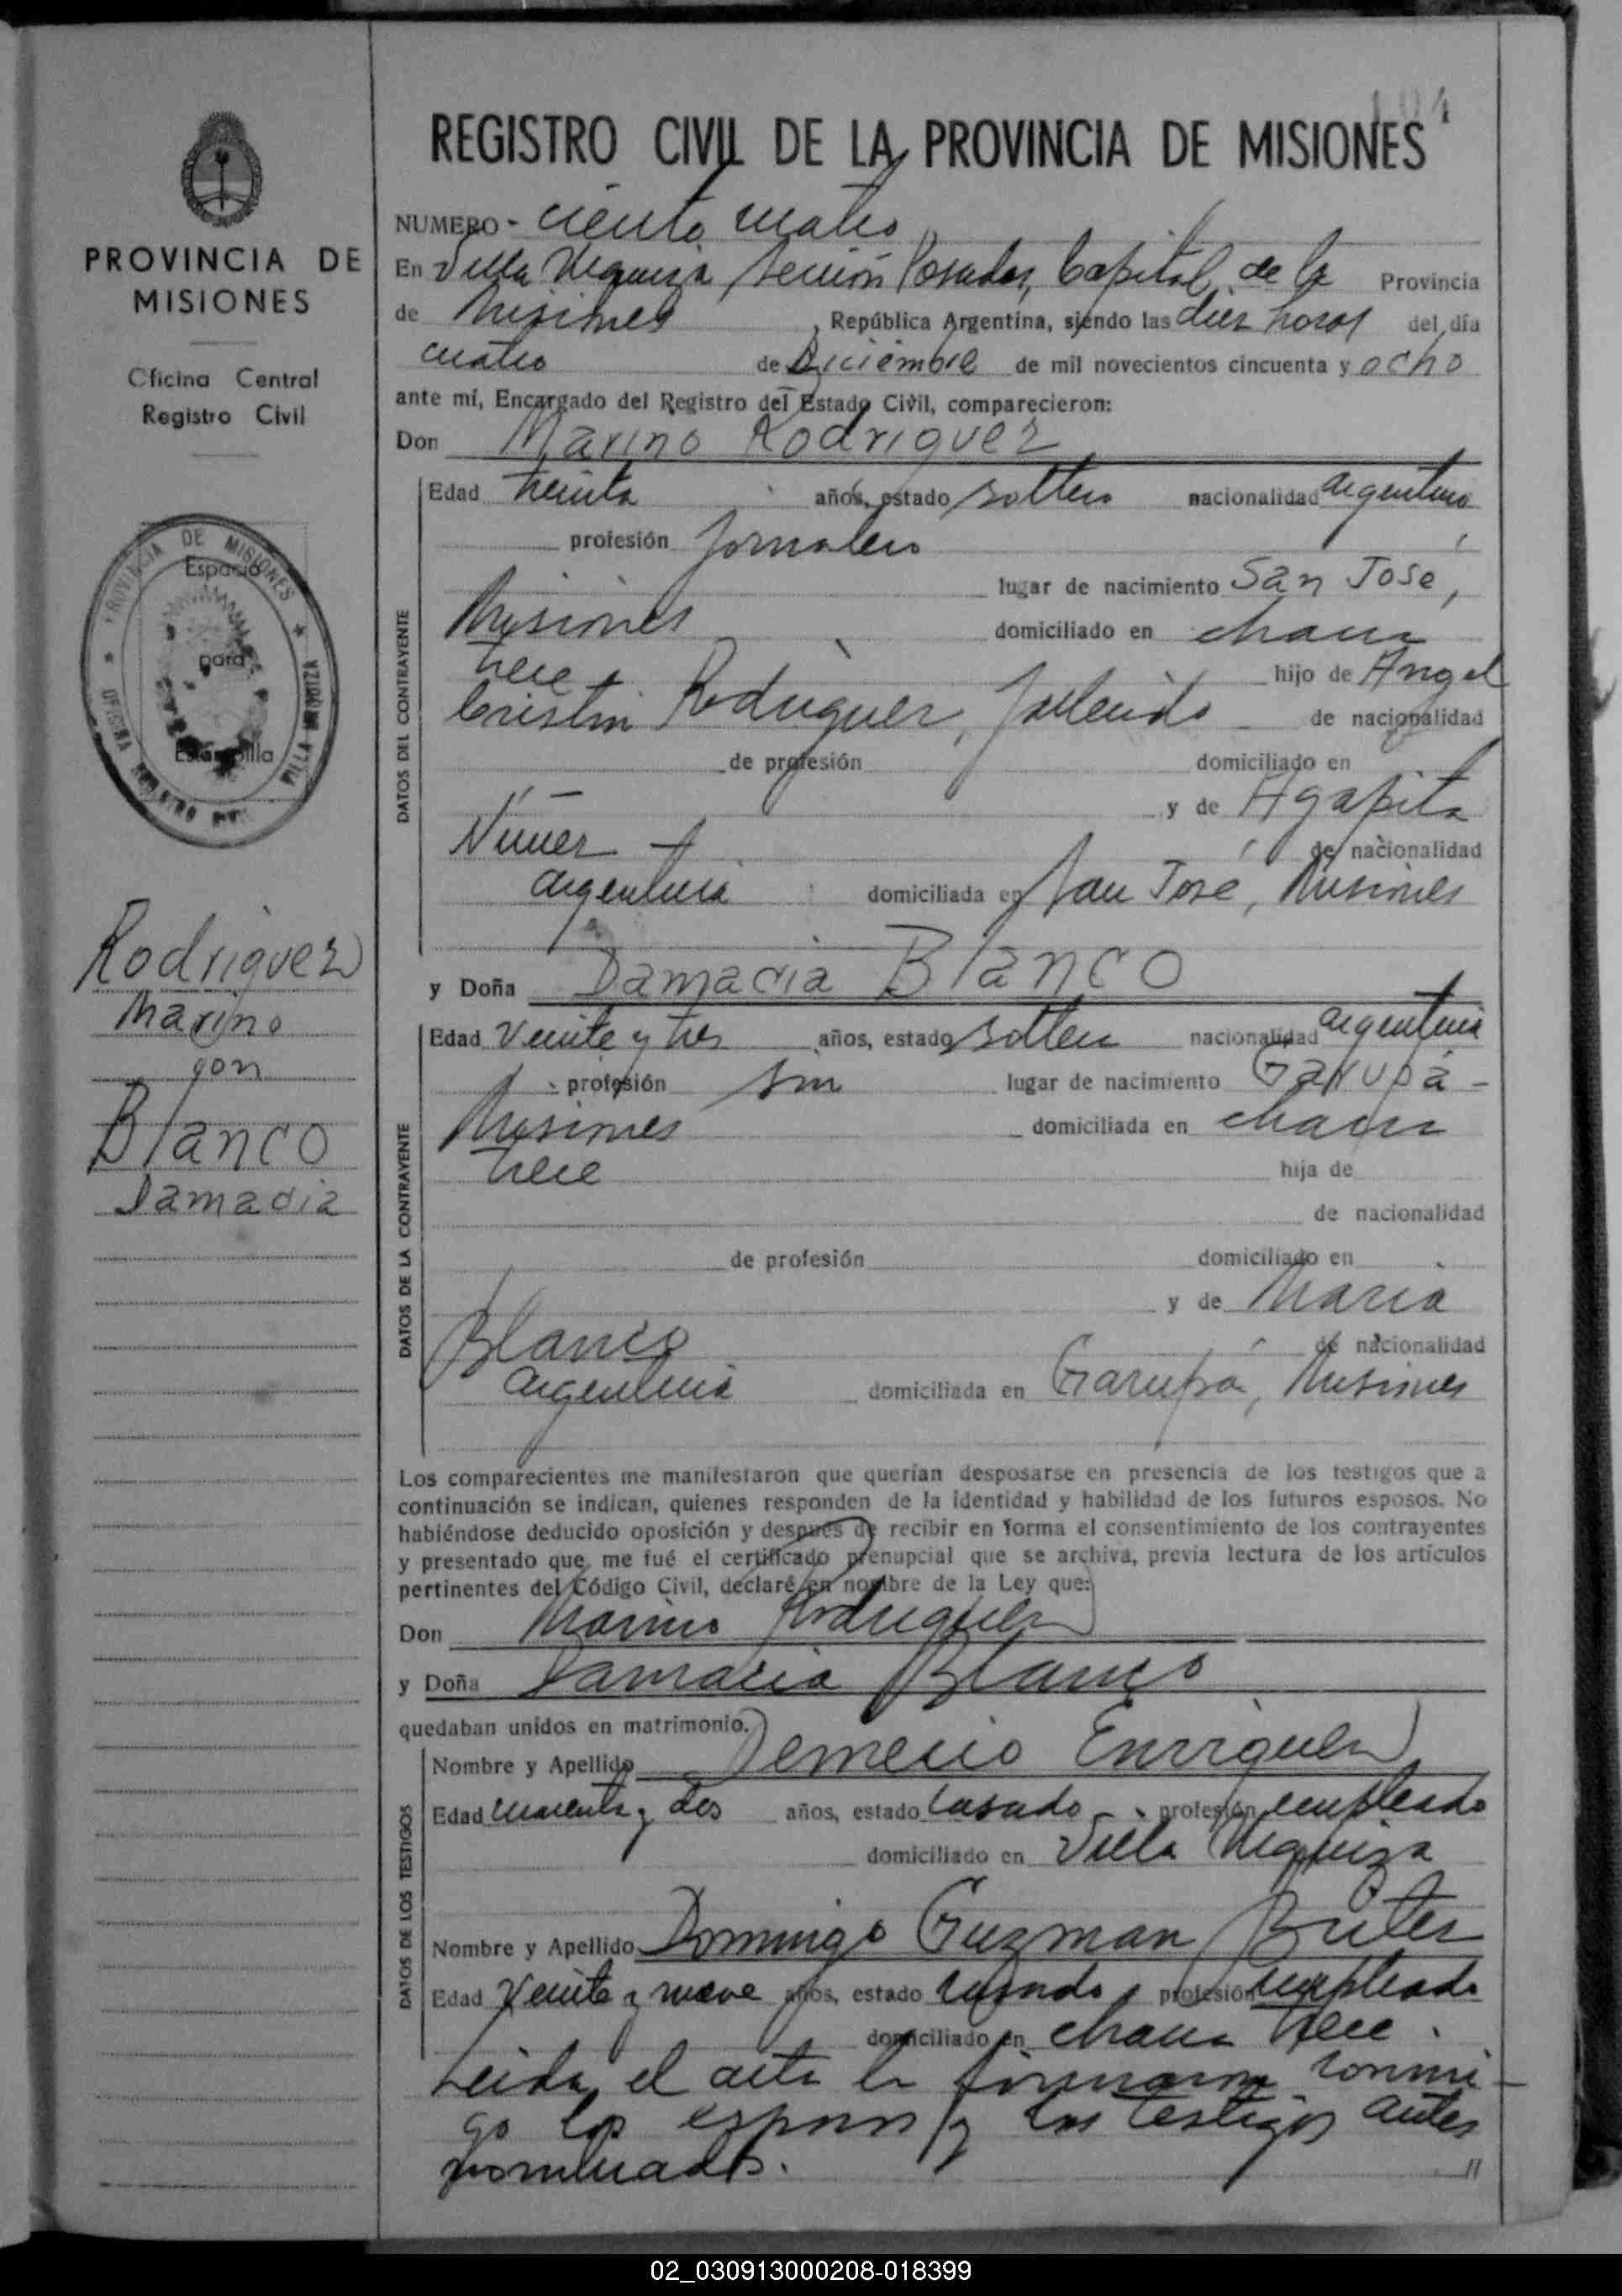 104
REGISTRO CIVIL DE LA PROVINCIA DE MISIONES
PROVINCIA DE
MISIONES
Oficina Central
Registro Civil
PROVINCIA DE MISIONES
Espacio
para
Estampilla
OFICINA REGISTRO
VILLA URQUIZA
Rodriguez
Marino
con
Blanco
Damacia
NUMERO - ciento cuatro
En Villa Urquiza, Sección Posadas, Capital de la Provincia
de Misiones, República Argentina, siendo las diez horas del día
cuatro de Diciembre de mil novecientos cincuenta y ocho
ante mí, Encargado del Registro del Estado Civil, comparecieron:
Don Marino Rodriguez
DATOS DEL CONTRAYENTE
Edad treinta años, estado soltero nacionalidad argentino
profesión Jornalero
lugar de nacimiento San José,
Misiones domiciliado en chacra
trece hijo de Angel
Cristin Rodriguez, fallecido de nacionalidad
de profesión domiciliado en
y de Agapita
Nuñez de nacionalidad
argentina domiciliada en San José, Misiones
y Doña Damacia Blanco
DATOS DE LA CONTRAYENTE
Edad veinte y tres años, estado soltera nacionalidad argentina
profesión sin lugar de nacimiento Garupá -
Misiones domiciliada en chacra
trece hija de
de nacionalidad
de profesión domiciliado en
y de Maria
Blanco de nacionalidad
argentina domiciliada en Garupá, Misiones
Los comparecientes me manifestaron que querían desposarse en presencia de los testigos que a
continuación se indican, quienes responden de la identidad y habilidad de los futuros esposos. No
habiéndose deducido oposición y después de recibir en forma el consentimiento de los contrayentes
y presentado que me fué el certificado prenupcial que se archiva, previa lectura de los artículos
pertinentes del Código Civil, declaré en nombre de la Ley que:
Don Marino Rodriguez
y Doña Damacia Blanco
quedaban unidos en matrimonio.
DATOS DE LOS TESTIGOS
Nombre y Apellido Demecio Enriquez
Edad cuarenta y dos años, estado casado - profesión empleado
domiciliado en Villa Urquiza
Nombre y Apellido Domingo Guzman
Edad veinte y nueve años, estado casado, profesión empleado
domiciliado en chacra trece.
Leida el acta la firmaron conmi-
go los esposos y los testigos antes
nominados.
02_030913000208-018399